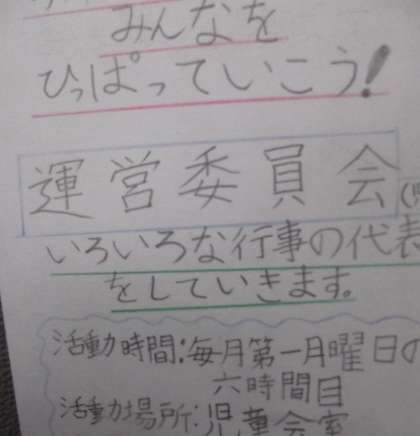 みんなを
ひっぱっていこう!
運営委員会
いろいろな行事の代表
をしていきます。
活動時間:毎月第一月曜日の
六時間目
活動場所:児童会室